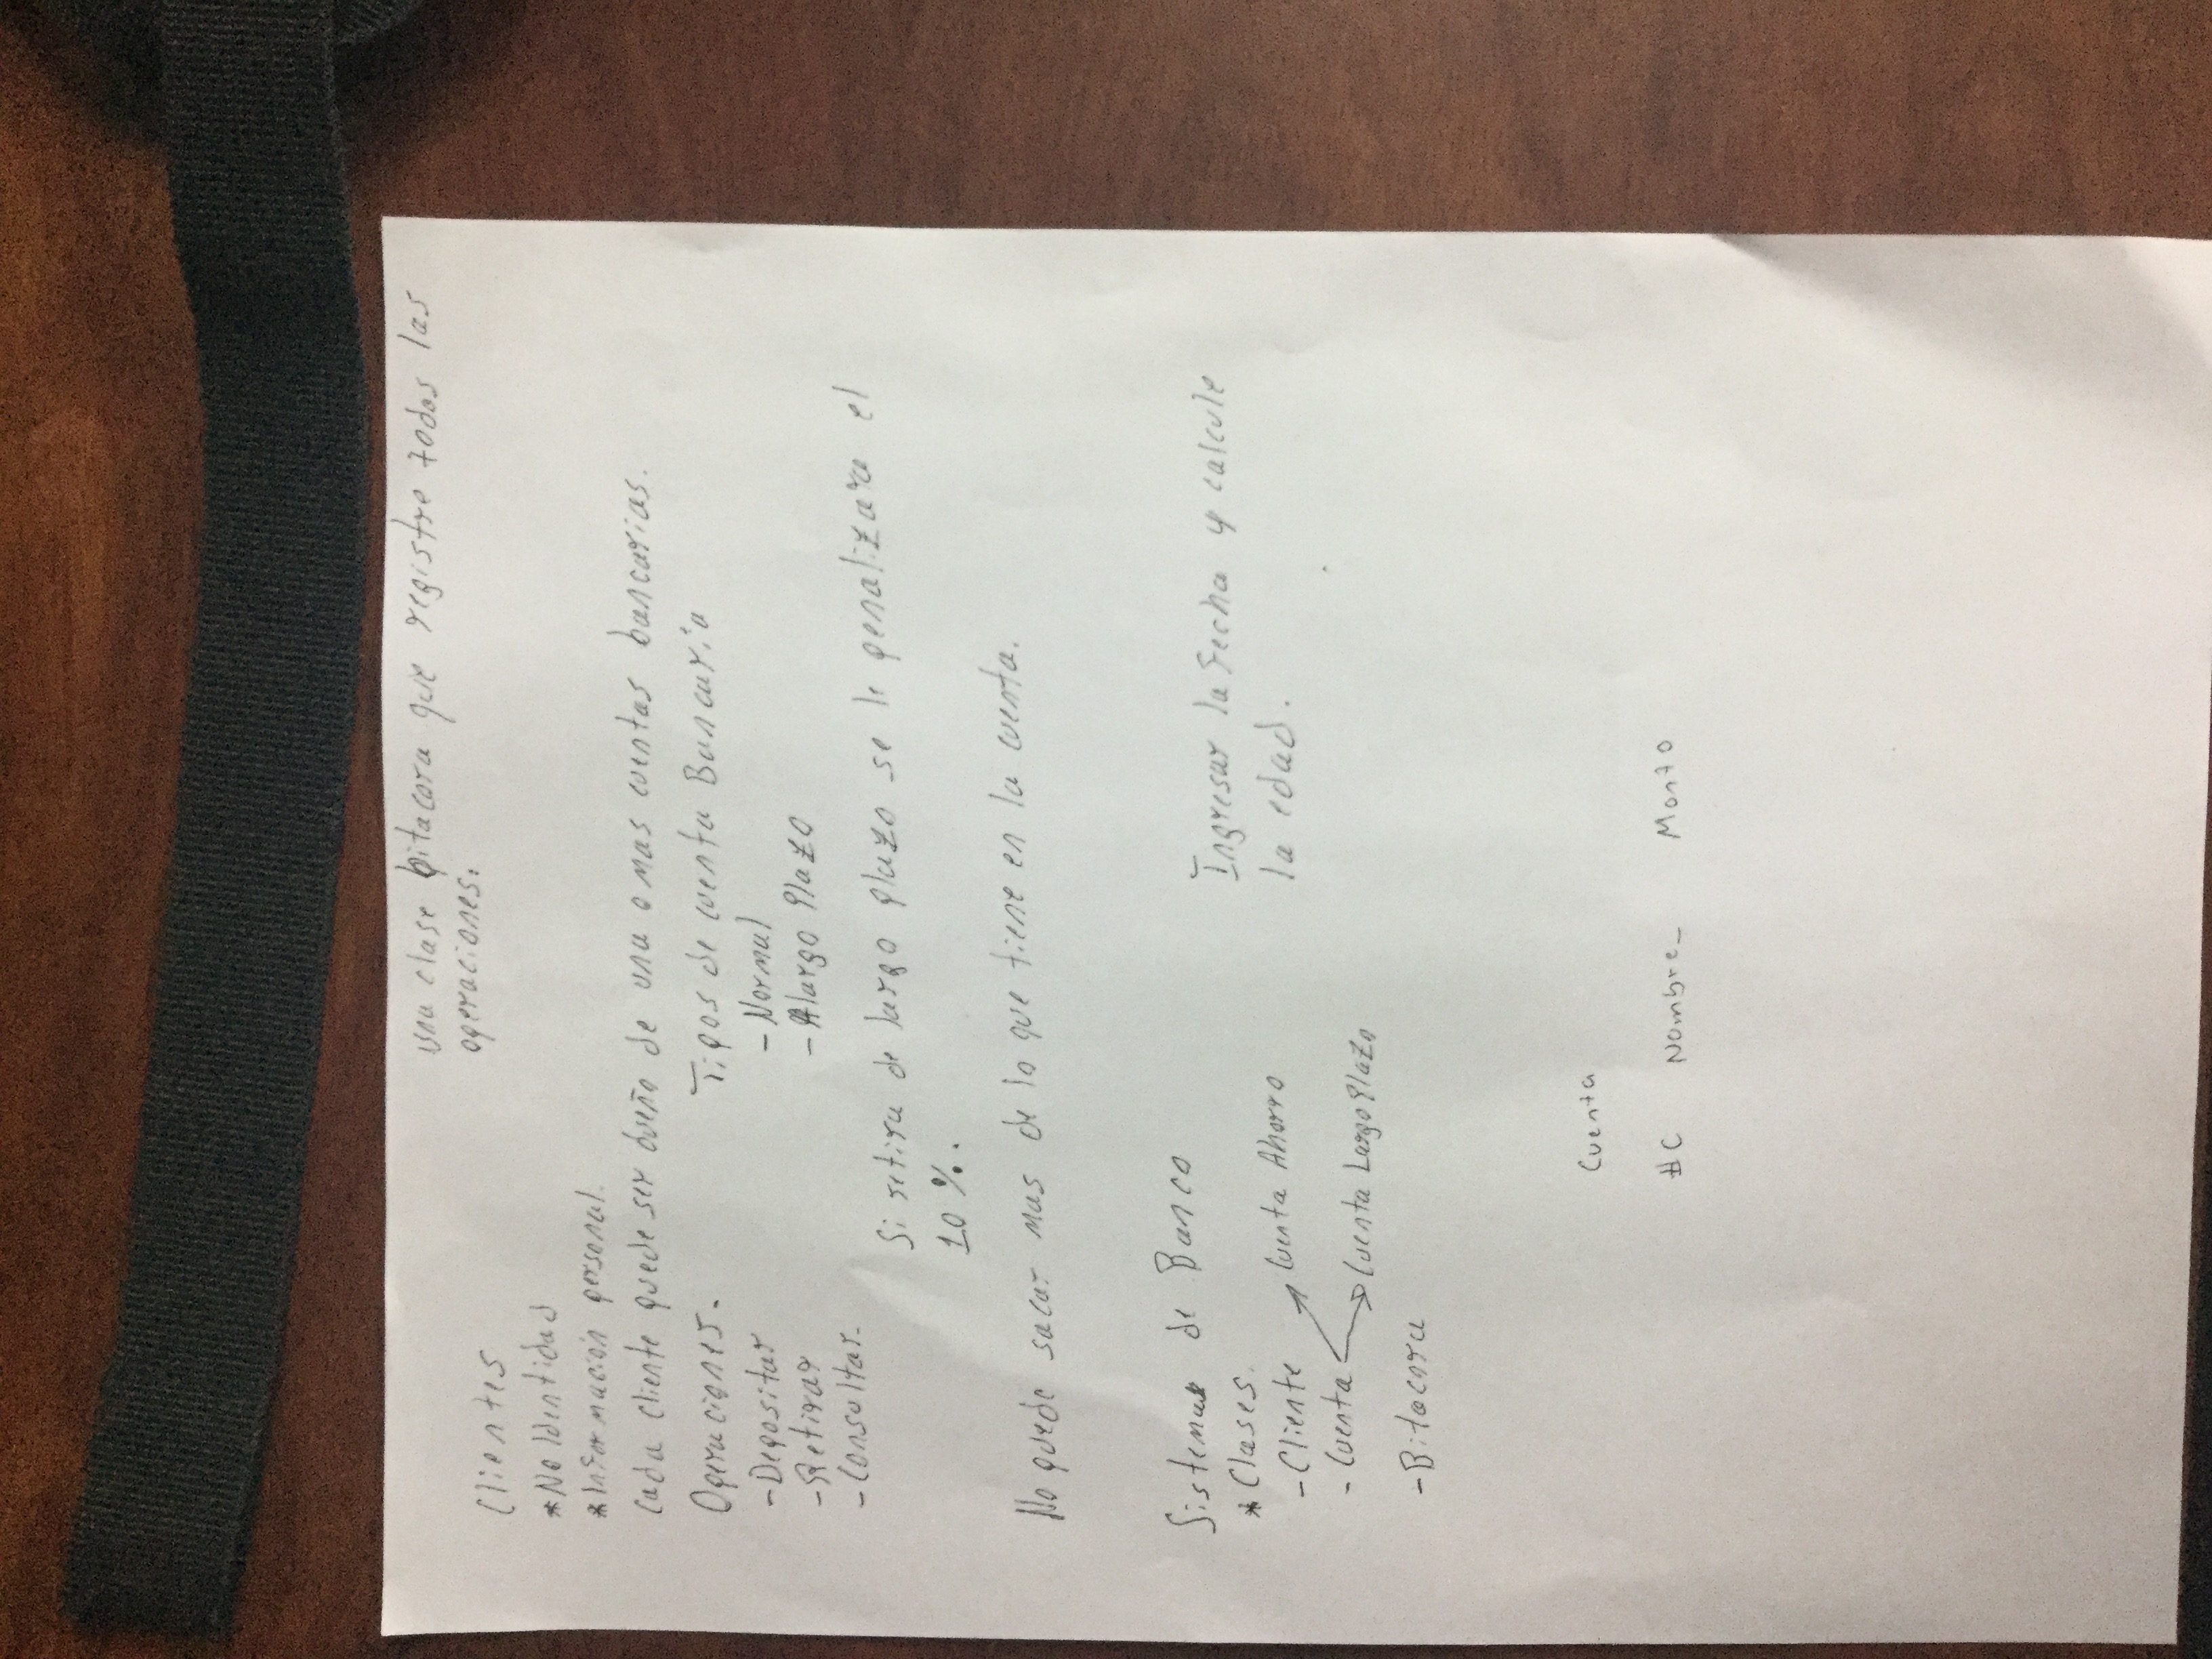 una clase bitacora que registre todas las
operaciones.
Clientes
*No Identidad
*Información personal.
Cada cliente puede ser dueño de una o mas cuentas bancarias.
Operaciones.
-Depositar
-Retirar
-Consultar.
Tipos de cuenta Bancaria
-Normal
-Alargo Plazo
Si retira de largo plazo se le penalizara el
10%.
No puede sacar mas de lo que tiene en la cuenta.
Sistema de Banco
* Clases.
-Cliente
-Cuenta
Cuenta Ahorro
Cuenta Largo Plazo
-Bitacora
Ingresar la fecha y calcule
la edad.
Cuenta
#C Nombre_ Monto